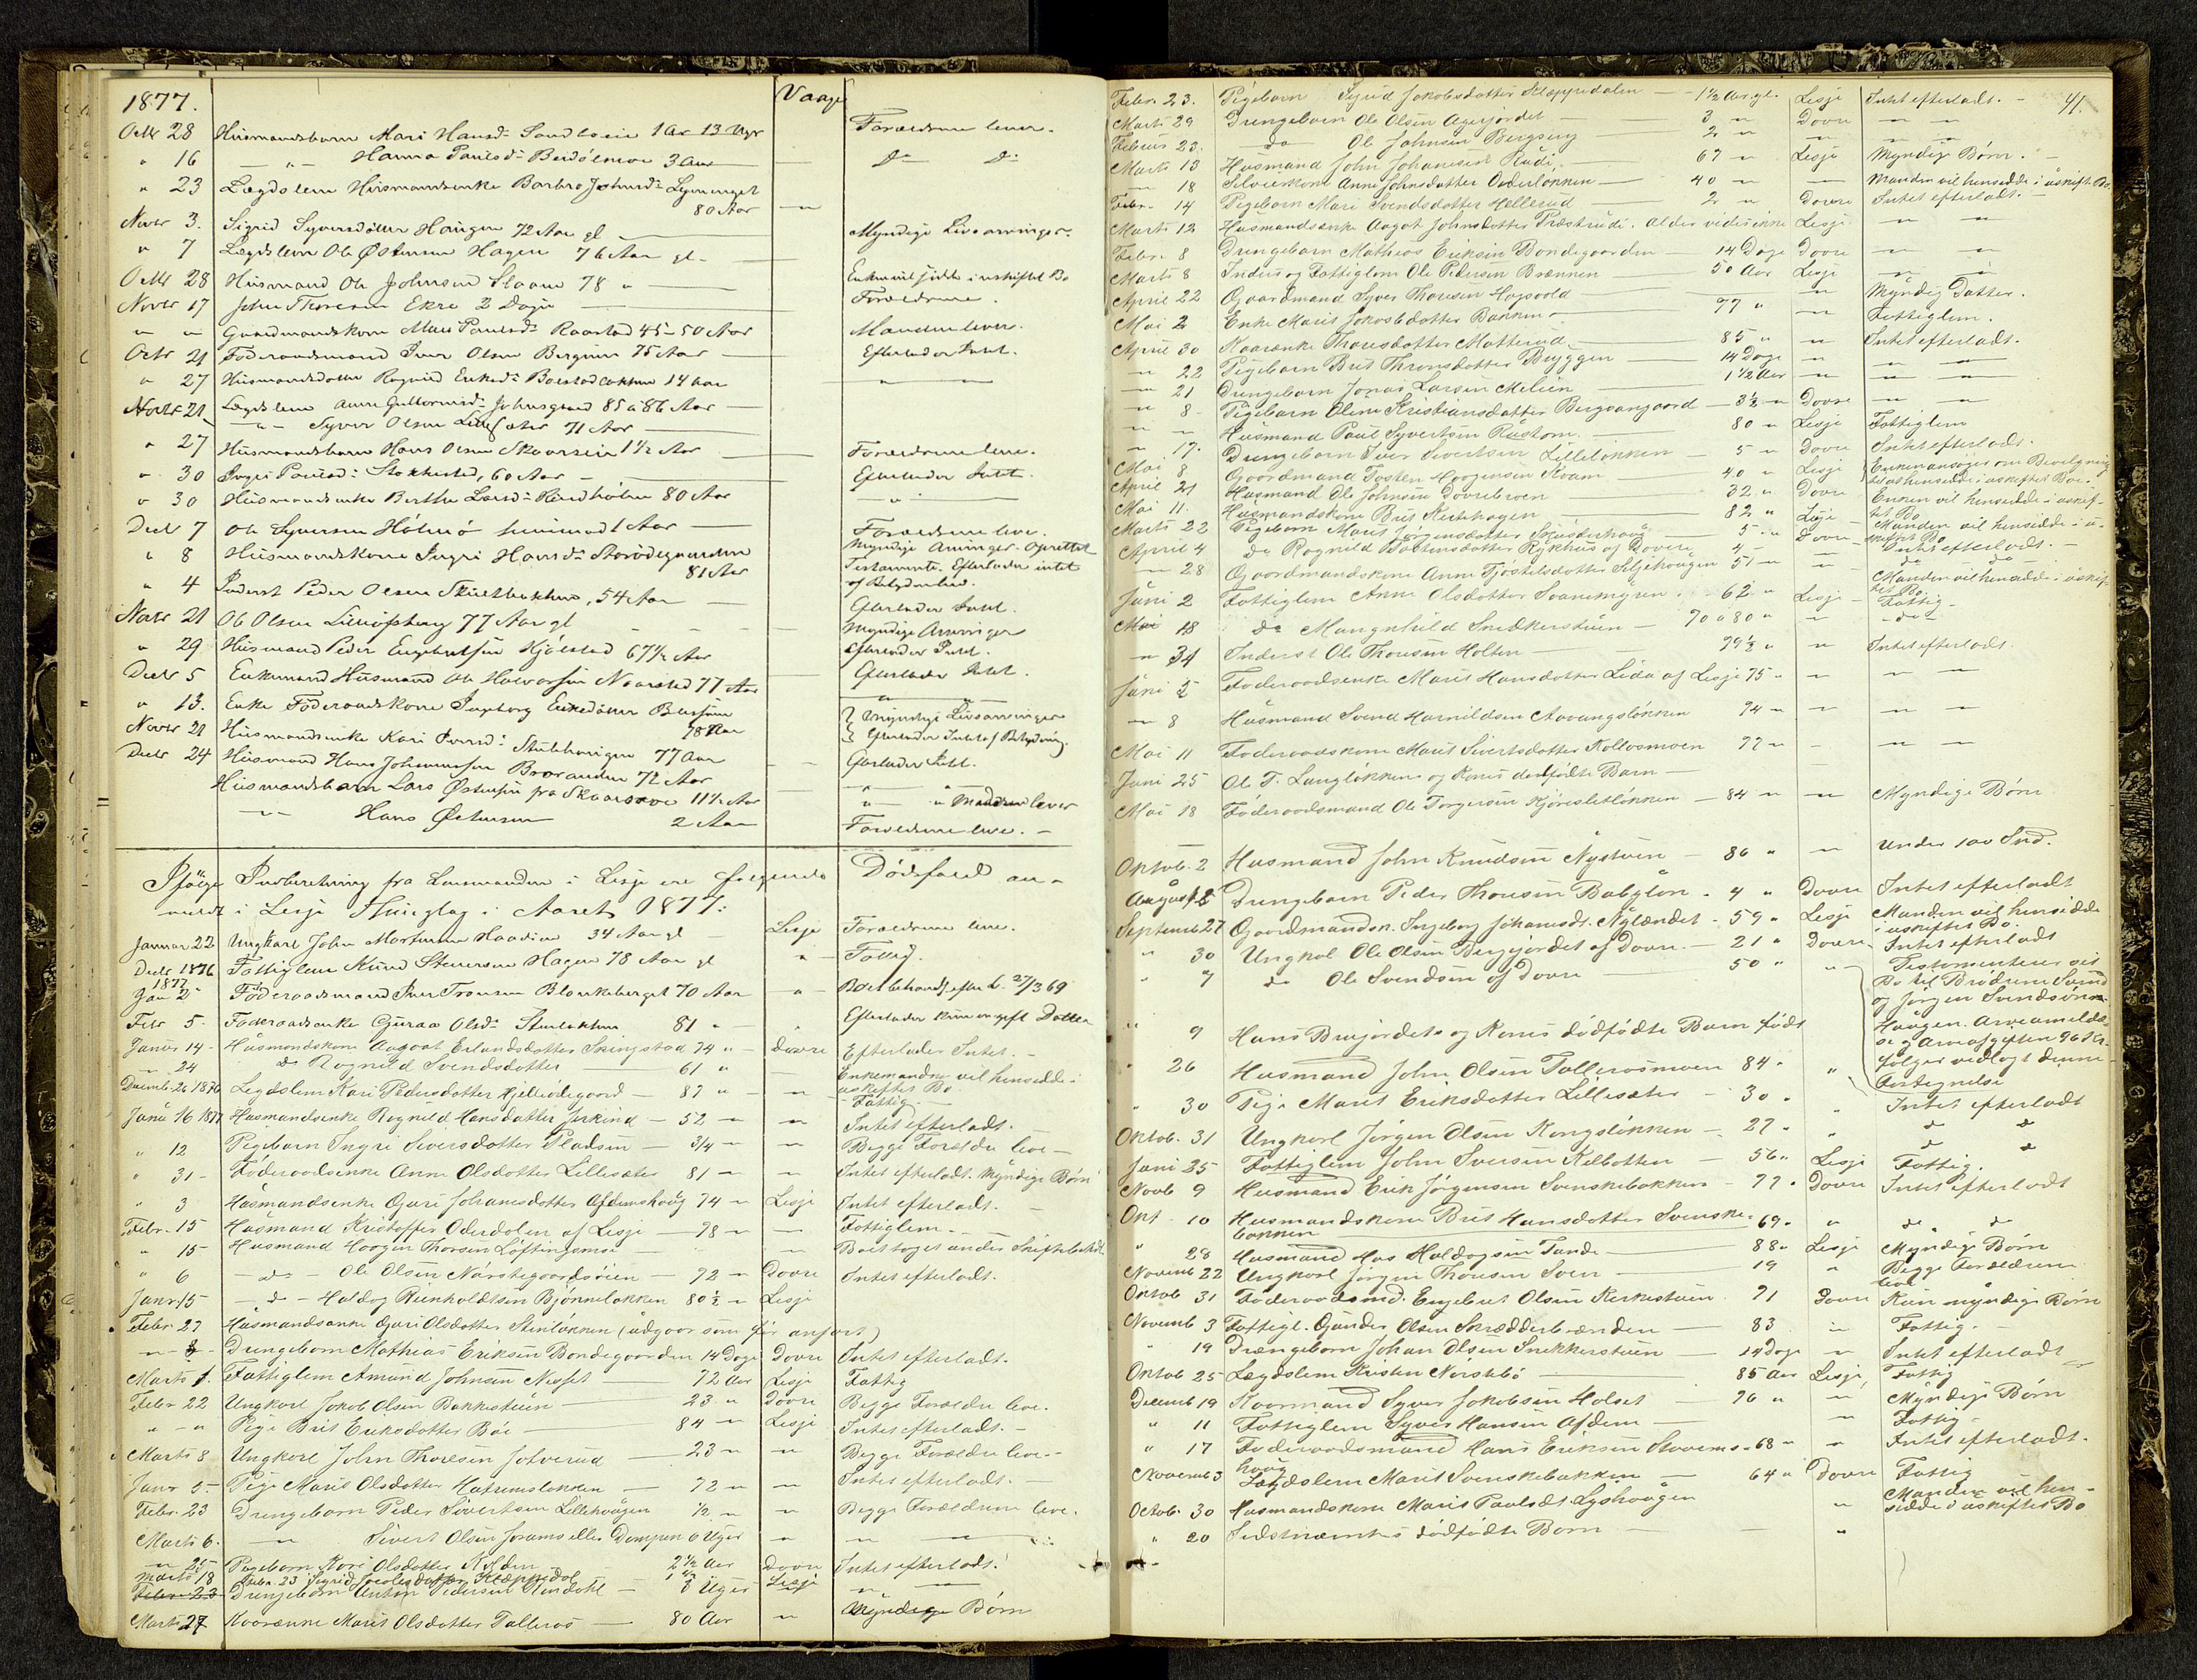 1877. Vaage
Octbr 28 Huusmandsbarn Mari Hansd: 1 Aar 13 Uger Forældrene lever.
" 16 — " — Hanna Paulsd: 3 Aar — Do Do
" 23 Lægdslem Huusmandsenke Barbro Johnsd:
80 Aar
Novbr 3. Sigrid Syversdatter Haugen 72 Aar gl — Myndige Livsarvinger.
" 7 Lægdslem Ole Østensen Hagen 76 Aar gl. —
Octbr 28 Huusmand Ole Johnsen Slaaen 78 " — Enken vil sidde i uskiftet Bo
Novbr 17 John Thoresen Ekre 2 Dage Forældrene.
" " Gaardmandskone Mari Paulsd: Raastad 45 - 50 Aar Manden lever.
Octbr 21 Föderaadsmand Iver Olsen 75 Aar — Efterlader Intet.
" 27 Huusmandsdatter Ragnild Eriksd: 14 Aar " —
Novbr 21 Lægdslem Anne Guttormsd: 85 a 86 Aar —
— " — Syver Olsen Lillesæter 71 Aar —
" 27 Huusmandsbarn Hans Olsen 1 1/2 Aar Forældrene leve.
" 30 Ingri Paulsd: Stokkestad, 60 Aar — Efterlader Intet.
" 30 Huusmandsenke Berthe Larsd: 80 Aar — " —
Decbr 7 Ole Syversen Holmö 1 Aar — Forældrene leve.
" 8 Huusmandskone Ingri Hansd: Myndige Arvinger. Oprettet
81 Aar Testamente. Efterlader intet
" 4 Inderst Peder Olsen, 54 Aar — af Betydenhed.
Novbr 21 Ole Olsen 77 Aar gl Efterlader Intet.
" 29 Huusmand Peder Engebretsen Kjölstad 67 1/2 Aar Myndige Arvinger
Efterlader Intet.
Decbr 5 Enkemand Huusmand Ole Halvorsen 77 Aar Efterlader Intet.
" 13. Enke Föderaadskone Ingeborg — " —
78 Aar Myndige Livsarvinger
Novbr 21 Huusmandsenke Kari Iversd: 77 Aar Efterlader Intet af Betydning.
Decbr 24 Huusmand Hans Johannessen 72 Aar Efterlader Intet.
Huusmandsbarn Lars Østensen fra 11 1/2 Aar " " Moderen lever
— " — Hans Østensen 2 Aar Forældrene leve. —
Ifölge Indberetning fra Lensmanden i Lesje ere følgende Dödsfald an-
meldt i Lesje Thinglag i Aaret 1877:
Januar 22 Ungkarl John Mortensen 34 Aar gl Lesje Forældrene leve.
Decbr 1876 Fattiglem Knud Steenersen Hagen 78 Aar gl " — Fattig.
1877
Jan 2 Föderaadsmand Iver Tronsen Blankeberget 70 Aar " Boet behandl. efter L. 27/3 69
Febr 5. Föderaadsenke Guroe Olsd: 81 " " Efterlader kun en gift Datter
Januar 14 - Husmandskone Aagaat Erlandsdatter Skingstad 74 " Dovre Efterlader Intet. —
" 24 do Ragnild Svendsdatter — 61 " — Enkemanden vil hensidde i
Decemb. 26 1876 Legdslem Kari Pedersdatter — 87 " — uskiftet Bo
Janu 16 1877 Husmandsenke Ragnild Hansdatter — 52 — " — Fattig. —
" 12 Pigebarn Ingri Siversdatter Pladsen — 3/4 — " Intet efterladt.
Begge Forældre leve —
" 31 - Föderaadsenke Anne Olsdatter Lillesæter 81 — " Intet efterladt. Myndige Børn
" 3 Husmandsenke Guri Johannesdatter 74 — Lesje Intet efterladt. —
Febr. 15 Husmand Kristoffer Oderdolen af Lesje — 78 — — Fattiglem —
" 15 - Husmand Haagen Thorsen — — " — Boet taget under Skiftebehdl.
" 6 — do — Ole Olsen — 72 — Dovre Intet efterladt.
Janr. 15 — do — Haldog Reinholdtsen Bjönneløkken 80 1/2 — Lesje
Febr. 27 Husmandsenke Guri Olsdatter Stenløkken (udgaar som før anført)
— " 8 — Drengebarn Mathias Eriksen Bondegaarden 14 Dage Dovre Intet efterladt.
Marts 1. Fattiglem Amund Johnsen — 72 Aar Lesje Fattig
Febr 22 Ungkarl Jakob Olsen Bakkestuen 23 " Dovre Begge Forældre leve.
" — " Pige Brit Eriksdatter Böe — 84 — Lesje Intet efterladt. —
Marts 8 Ungkarl John Thoresen — 23 — — Begge Forældre leve —
Janr 5. Pige Marit Olsdatter 72 — — Intet efterladt. —
Febr. 23 Drengebarn Peder Sivertsen Lillehaugen 1/2 — " Begge Forældrene leve.
Marts 6. — " Sivert Olsen 6 Uger " — " —
— " 25 Pigebarn Kari Olsdatter 2 1/2 Aar Dovre Intet efterladt.
Marts 18 Febr. 23 Sigrid Jacobsdatter Kleppedal 1 1/2 Lesje
Febr. 23 Drengebarn Anton Pedersen — 8 Uger " —
Marts 27 Kaarenke Marit Olsdatter Tallerås — 80 Aar — " Myndige Børn
41.
Febr. 23. Pigebarn Sigrid Jakobsdatter Kleppedalen — 1 1/2 Aar gl. Lesje Intet efterladt. —
Marts 29 Drengebarn Ole Olsen Agerjordet — 3 " Dovre — " —
Februr 23. — do Ole Johnsen Bergseng — 2 — " — " —
Marts 13 Husmand John Johannesen Rudi. — 67 — Lesje Myndige Børn. —
— " 18 Selveierkone Anne Johnsdatter Oderløkken — 40 — — Manden vil hensidde i uskift. Bo
Febr. 14 Pigebarn Mari Svendsdatter Hallerud — 2 — Dovre Intet efterladt.
Marts 12 Husmandsenke Aagot Johnsdatter. Alder vides ikke Lesje — " —
Febr. 8 Drengebarn Mathias Eriksen Bondegaarden — 14 Dage Dovre — " —
Marts 8 Inders og Fattiglem Ole Pedersen Brænnen — 50 Aar Lesje — " —
April 22 Gaardmand Syver Thoresen — " Myndig Datter.
Mai 2 Enke Marit Jakobsdatter Bakken — 77 " " Fattiglem.
April 30 Kaarenke Thoresdatter — 85 " " Intet efterladt.
— " 22 Pigebarn Brit Thronsdatter Bryggen — 14 Dage " — " —
— " 21 Drengebarn Jonas Larsen — 1 1/2 Aar — " — " —
— " 8 - Pigebarn Oline Kristiansdatter — 3 1/2 — Dovre — " —
" — Husmand Paul Syvertsen — 80 — Lesje Fattiglem
— " 17. Drengebarn Iver Sivertsen Lilleløkken — 5 — Dovre Intet efterladt.
Mai 8 Gaardmand Tosten Haagensen Kvam — 40 " Lesje Enken ansøger om Bevilgning
til at hensidde i uskiftet Boe.
April 21 Husmand Ole Johnsen Dovrebroen — 32 " Dovre Enken vil hensidde i uskif-
tet Bo
Mai 11. Husmandskone Brit — 82 " Lesje Manden vil hensidde i u-
skiftet Bo
Marts 22 Pigebarn Marit Jørgensdatter — 5 — Dovre Intet efterladt. —
April 4 do Ragnild af Dovre 4 — " — do —
— " 28 Gaardmandskone Anne 51 — — Manden vil hensidde i uskif-
tet Bo.
Juni 2 Fattiglem Anne Olsdatter Svanemyren. 62 " Lesje — Fattig —
Mai 18 do Mangnhild Snekkerstuen — 70 a 80 " — — do —
— " 31 Inderst Ole Thoresen Holten — 79 1/2 " — Intet efterladt.
Juni 5 Föderaadsenke Marit Hansdatter af Lesje 75 " — — " —
— " 8 Husmand Svend 74 — — — " —
Mai 11 Föderaadskone Marit Sivertsdatter 77 — — " —
Juni 25 Ole T. Langløkken og Kones dødfødte Barn —
Mai 18 Föderaadsmand Ole Torgersen — 84 — — Myndige Børn
Oktob. 2 Husmand John Knudsen Nystuen — 86 " — Under 100 Spd.
August 8 Drengebarn Peder Thoresen Babylon — 4 " Dovre Intet efterladt
Septemb 27 Gaardmandsk. Ingeborg Johannsdt. Nylændet — 59 " Lesje Manden vil hensidde
i uskiftet Bo.
" 30 Ungkal Ole Olsen Bergjordet af Dovre — 21 " Dovre Intet efterladt
" 7 do Ole Svendsen af Dovre — 50 " " Testamenterer sit
Bo til Brødrene Svend
og Jørgen Svendsønner
" 9 Hans og Kones dødfødte Barn født Haugen. Arveanmeldel-
se og Arveafgiften
" 26 Husmand John Olsen 84 " " følger vedlagt denne
Fortegnelse
" 30 Pige Marit Eriksdatter Lillesæter — 30 " " Intet efterladt
Oktob. 31 Ungkarl Jørgen Olsen Kongsløkken — 27 " " do do
Juni 25 Fattiglem John Iversen — 56 " Lesje Fattig.
Novb 9 Husmand Erik Jørgensen Svenskebakken — 77 " Dovre Intet efterladt
Okt 10 Husmandskone Brit Hansdatter Svenske- 69 " " do do
bakken
" 28 Husmand Haldogsen Tande — 88 " Lesje Myndige Børn
Novemb 22 Ungkarl Jørgen Thoresen — 19 " Begge Forældrene
leve
Oktob 31 Föderaadsmd. Engebret Olsen Kirkestuen 71 Dovre Kun myndige Børn
Novemb 3 Fattigl. Olsen Skrædderbrænden — 83 " Fattig. —
" 19 Drængebarn Johan Olsen Snekkerstuen — 14 Dage " Intet efterladt
Oktob 25 Legdslem Kristen Norstebø — 85 Aar Lesje Fattig
Decemb 19 Kaarmand Syver Jakobsen Holset 76 " — Myndige Børn
" 11 Fattiglem Syver Hansen Afdem — " Fattig —
" 17 Föderaadsmand Hans Eriksen — 68 — " Intet efterladt.
Novemb 3 Legdslem Marit Svenskebakken — 64 " Dovre Fattig
Octob. 30 Husmandskone Marit Paulsdt. " Manden vil hen-
sidde i uskiftet Bo
" 20 Sidstnævntes dødfødte Barn — "